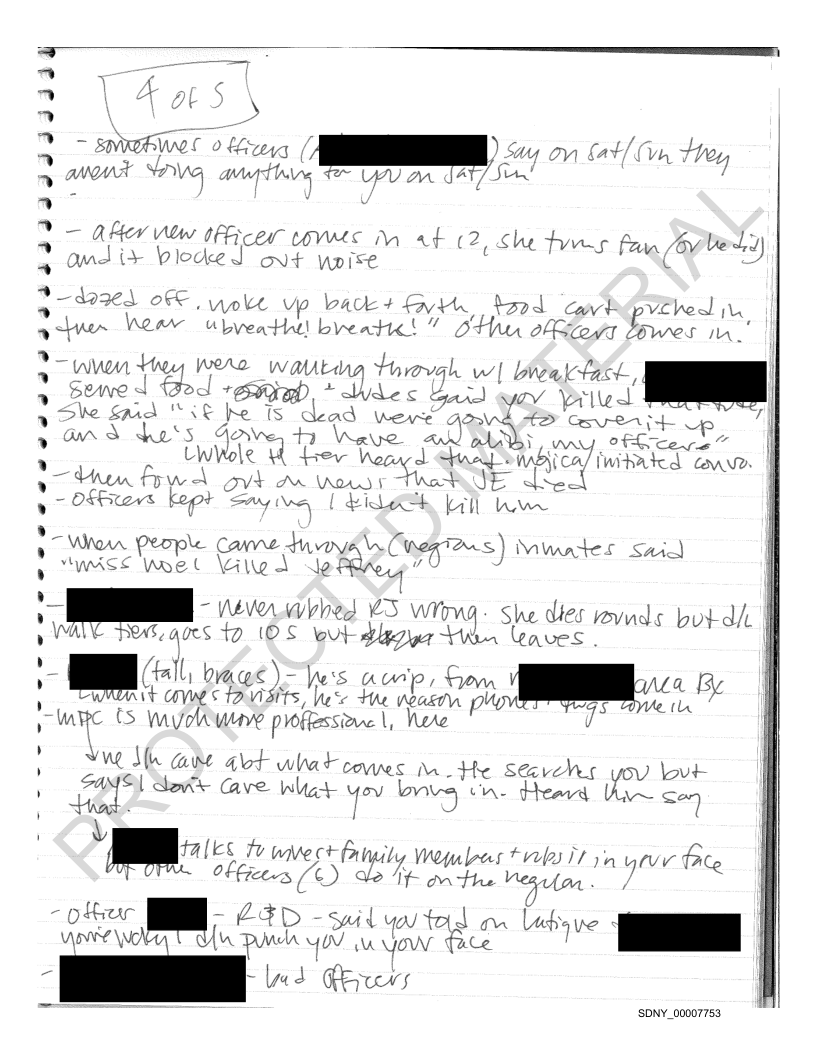 4 OF 5
- sometimes officers ( ) say on sat/sun they
aren't doing anything for you on sat/sun
-
- after new officer comes in at 12, she turns fan (or he did)
and it blocked out noise
- dozed off. woke up back + forth, food cart pushed in,
then hear "breathe! breathe!" Other officers comes in.
- when they were walking through w/ breakfast,
served food + dudes said you killed that dude,
she said "if he is dead we're going to cover it up
and he's going to have an alibi, my officers"
Whole H tier heard that. mojica/initiated convo.
- then found out on news that JE died
- officers kept saying I didn't kill him
- when people came through (regions) inmates said
"miss noel killed Jeffrey"
- - never rubbed RJ wrong. she does rounds but d/n
walk tiers, goes to 10 S but then leaves.
- (tall, braces) - he's a crip, from area Bx
when it comes to visits, he's the reason phones + drugs come in
- MDC is much more proffessional, here
he d/n care abt what comes in. He searches you but
says I don't care what you bring in. Heard him say
that.
talks to wives + family members + rubs it in your face
but other officers (6) do it on the regular.
- officer - R&D - said you told on
you're lucky I d/n punch you in your face
- - bad officers
PROTECTED MATERIAL
SDNY_00007753